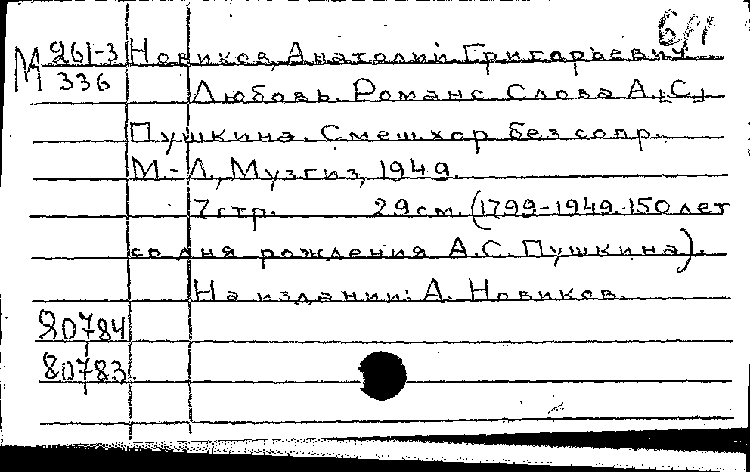 6/1
М 261-3 Новиков, Анатолий Григорьевич
336
Любовь. Романс. Слова А.С.
Пушкина. Смеш. хор без сопр.
М.-Л., Музгиз, 1949.
7 стр. 29 см. (1799-1949. 150 лет
со дня рождения А.С. Пушкина).
На издании: А. Новиков.
80784
80783